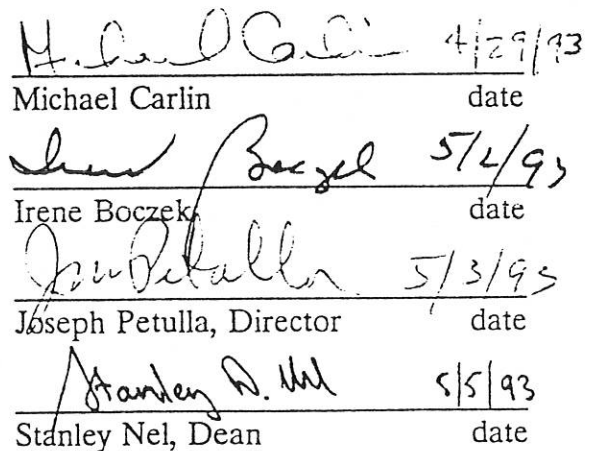 Michael Carlin 4/29/93
Michael Carlin date
Irene Boczek 5/2/93
Irene Boczek date
Joe Petulla 5/3/93
Joseph Petulla, Director date
Stanley D. Nel 5/5/93
Stanley Nel, Dean date